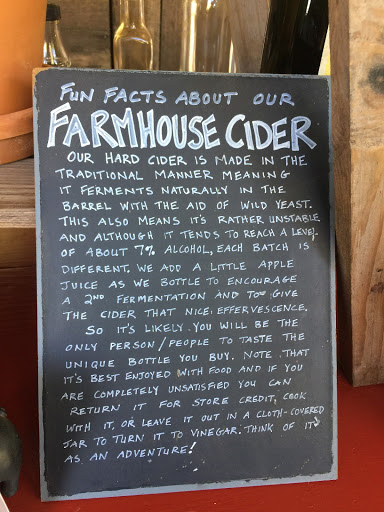 FUN FACTS ABOUT OUR
FARMHOUSE CIDER
OUR HARD CIDER IS MADE IN THE
TRADITIONAL MANNER MEANING
IT FERMENTS NATURALLY IN THE
BARREL WITH THE AID OF WILD YEAST.
THIS ALSO MEANS IT'S RATHER UNSTABLE
AND ALTHOUGH IT TENDS TO REACH A LEVEL
OF ABOUT 7% ALCOHOL, EACH BATCH IS
DIFFERENT. WE ADD A LITTLE APPLE
JUICE AS WE BOTTLE TO ENCOURAGE
A 2ND FERMENTATION AND TO GIVE
THE CIDER THAT NICE EFFERVESCENCE.
SO IT'S LIKELY YOU WILL BE THE
ONLY PERSON/PEOPLE TO TASTE THE
UNIQUE BOTTLE YOU BUY. NOTE THAT
IT'S BEST ENJOYED WITH FOOD AND IF YOU
ARE COMPLETELY UNSATISFIED YOU CAN
RETURN IT FOR STORE CREDIT, COOK
WITH IT, OR LEAVE IT OUT IN A CLOTH-COVERED
JAR TO TURN IT TO VINEGAR. THINK OF IT
AS AN ADVENTURE!